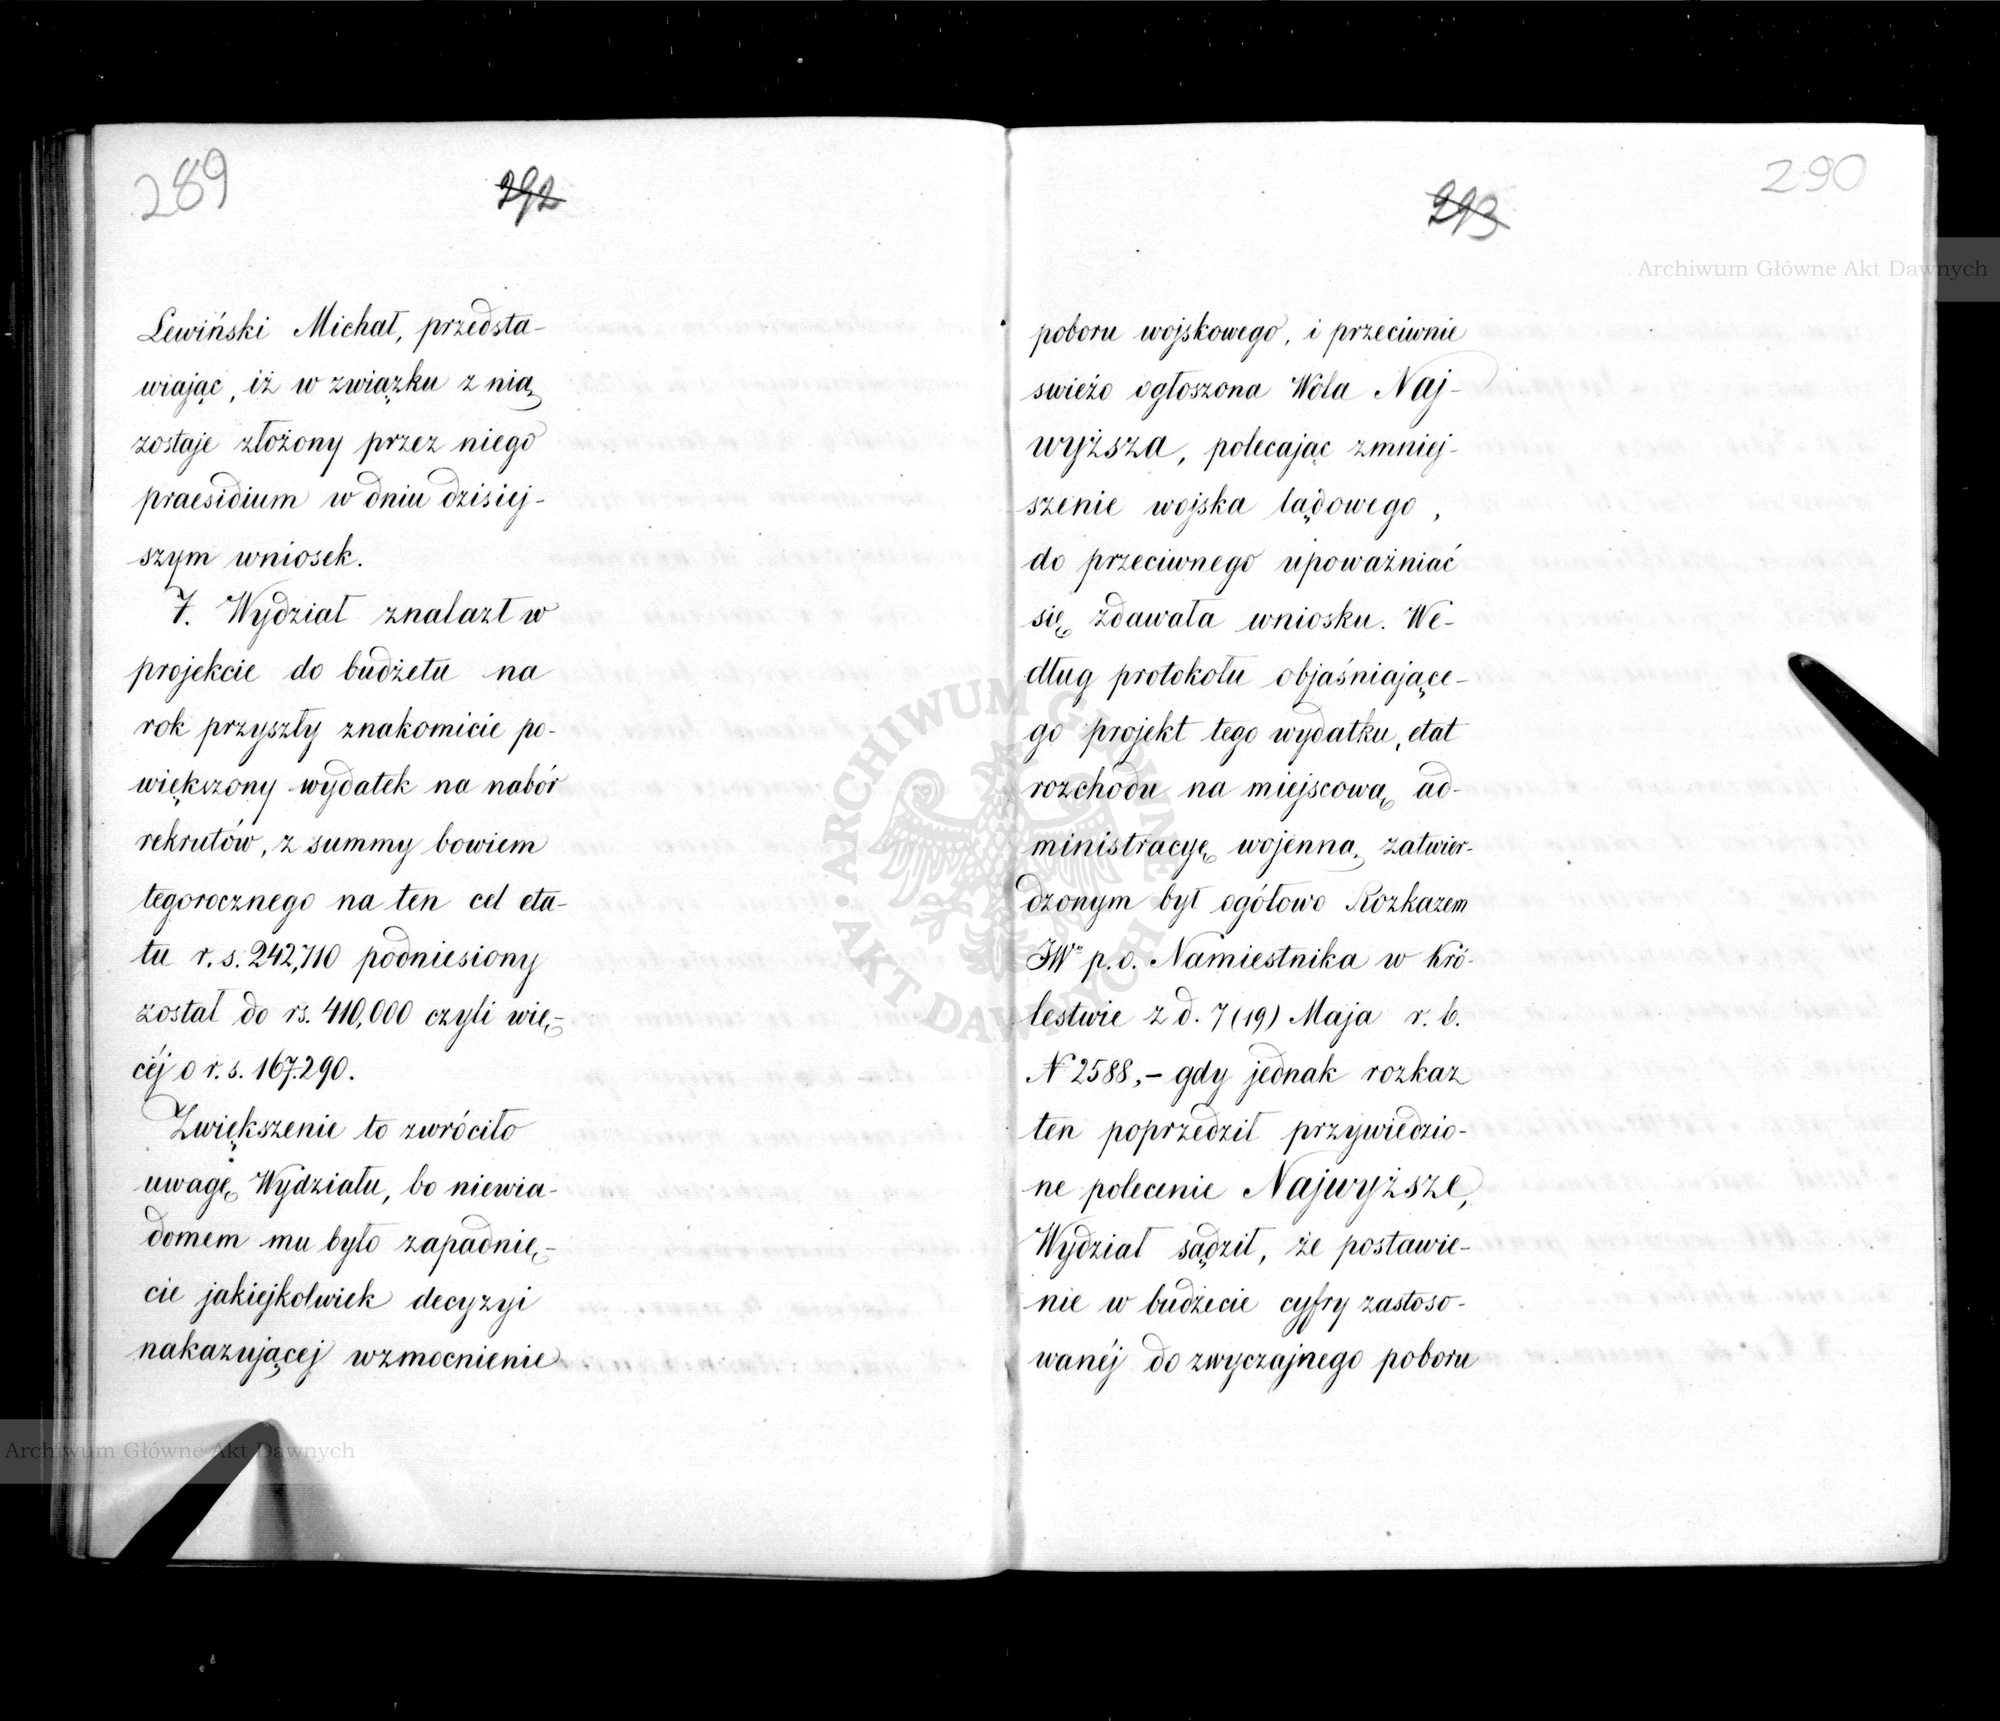 289
292
Lewiński Michał, przedsta-
wiając, iż w związku z nią
zostaje złożony przez niego
praesidium w dniu dzisiej-
szym wniosek.
7. Wydział znalazł w
projekcie do budżetu na
rok przyszły znakomicie po-
większony wydatek na nabór
rekrutów, z summy bowiem
tegorocznego na ten cel eta-
tu r. s. 242,710 podniesiony
został do rs. 410,000 czyli wię-
céj o r. s. 167.290.
Zwiększenie to zwróciło
uwagę Wydziału, bo niewia-
domem mu było zapadnię-
cie jakiejkolwiek decyzyi
nakazującej wzmocnienie
290
293
poboru wojskowego, i przeciwnie
swieżo ogłoszona Wola Naj-
wyższa, polecając zmniej-
szenie wojska lądowego,
do przeciwnego upoważniać
się zdawała wniosku. We-
dług protokołu objaśniające-
go projekt tego wydatku, etat
rozchodu na miejscową ad-
ministracyę wojenną, zatwier-
dzonym był ogółowo Rozkazem
JWo p. o. Namiestnika w Kró-
lestwie z d. 7 (19) Maja r. b.
N 2588,- gdy jednak rozkaz
ten poprzedził przywiedzio-
ne polecenie Najwyższe,
Wydział sądził, że postawie-
nie w budżecie cyfry zastoso-
wanéj do zwyczajnego poboru
Archiwum Główne Akt Dawnych
Archiwum Główne Akt Dawnych
ARCHIWUM GŁÓWNE AKT DAWNYCH